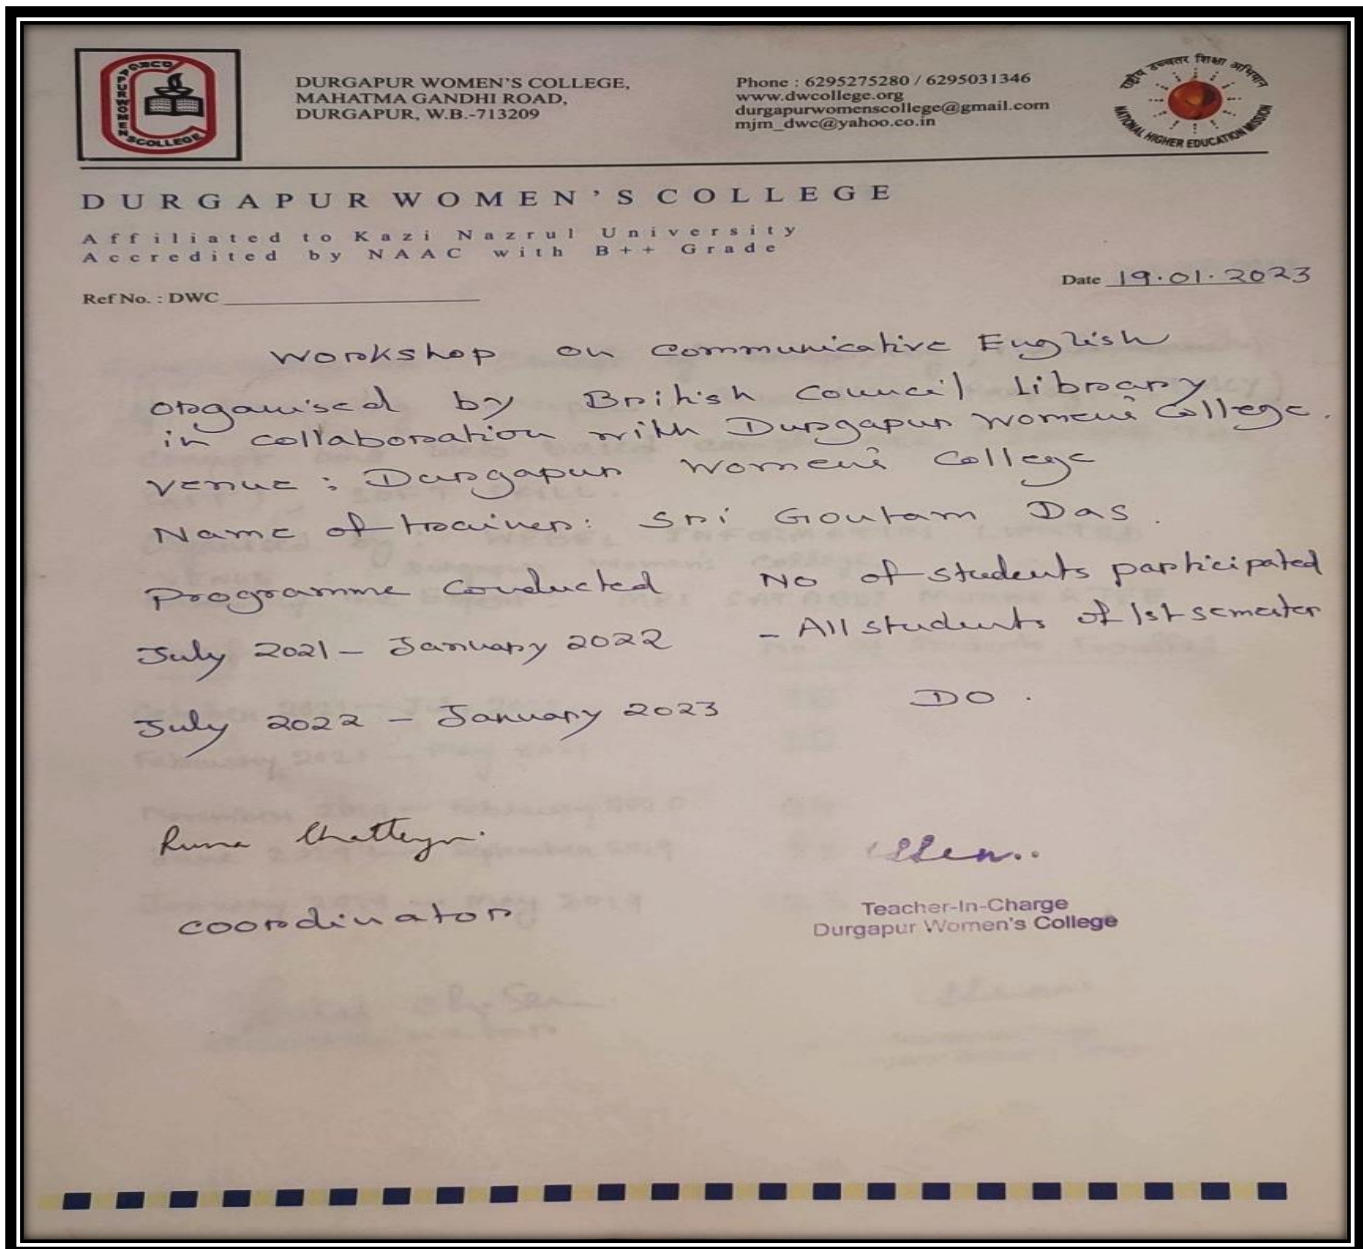 DURGAPUR WOMEN'S COLLEGE
DURGAPUR WOMEN'S COLLEGE,
MAHATMA GANDHI ROAD,
DURGAPUR, W.B.-713209
Phone : 6295275280 / 6295031346
www.dwcollege.org
durgapurwomenscollege@gmail.com
mjm_dwc@yahoo.co.in
राष्ट्रीय उच्चतर शिक्षा अभियान
NATIONAL HIGHER EDUCATION MISSION
DURGAPUR WOMEN'S COLLEGE
Affiliated to Kazi Nazrul University
Accredited by NAAC with B++ Grade
Ref No. : DWC
Date 19.01.2023
Workshop on Communicative English
organised by British Council Library
in collaboration with Durgapur Women's College.
Venue : Durgapur Women's College
Name of trainer: Sri Goutam Das.
Programme Conducted No of students participated
July 2021 - January 2022 - All students of 1st semester
July 2022 - January 2023 DO.
Ruma
Coordinator
Teacher-In-Charge
Durgapur Women's College